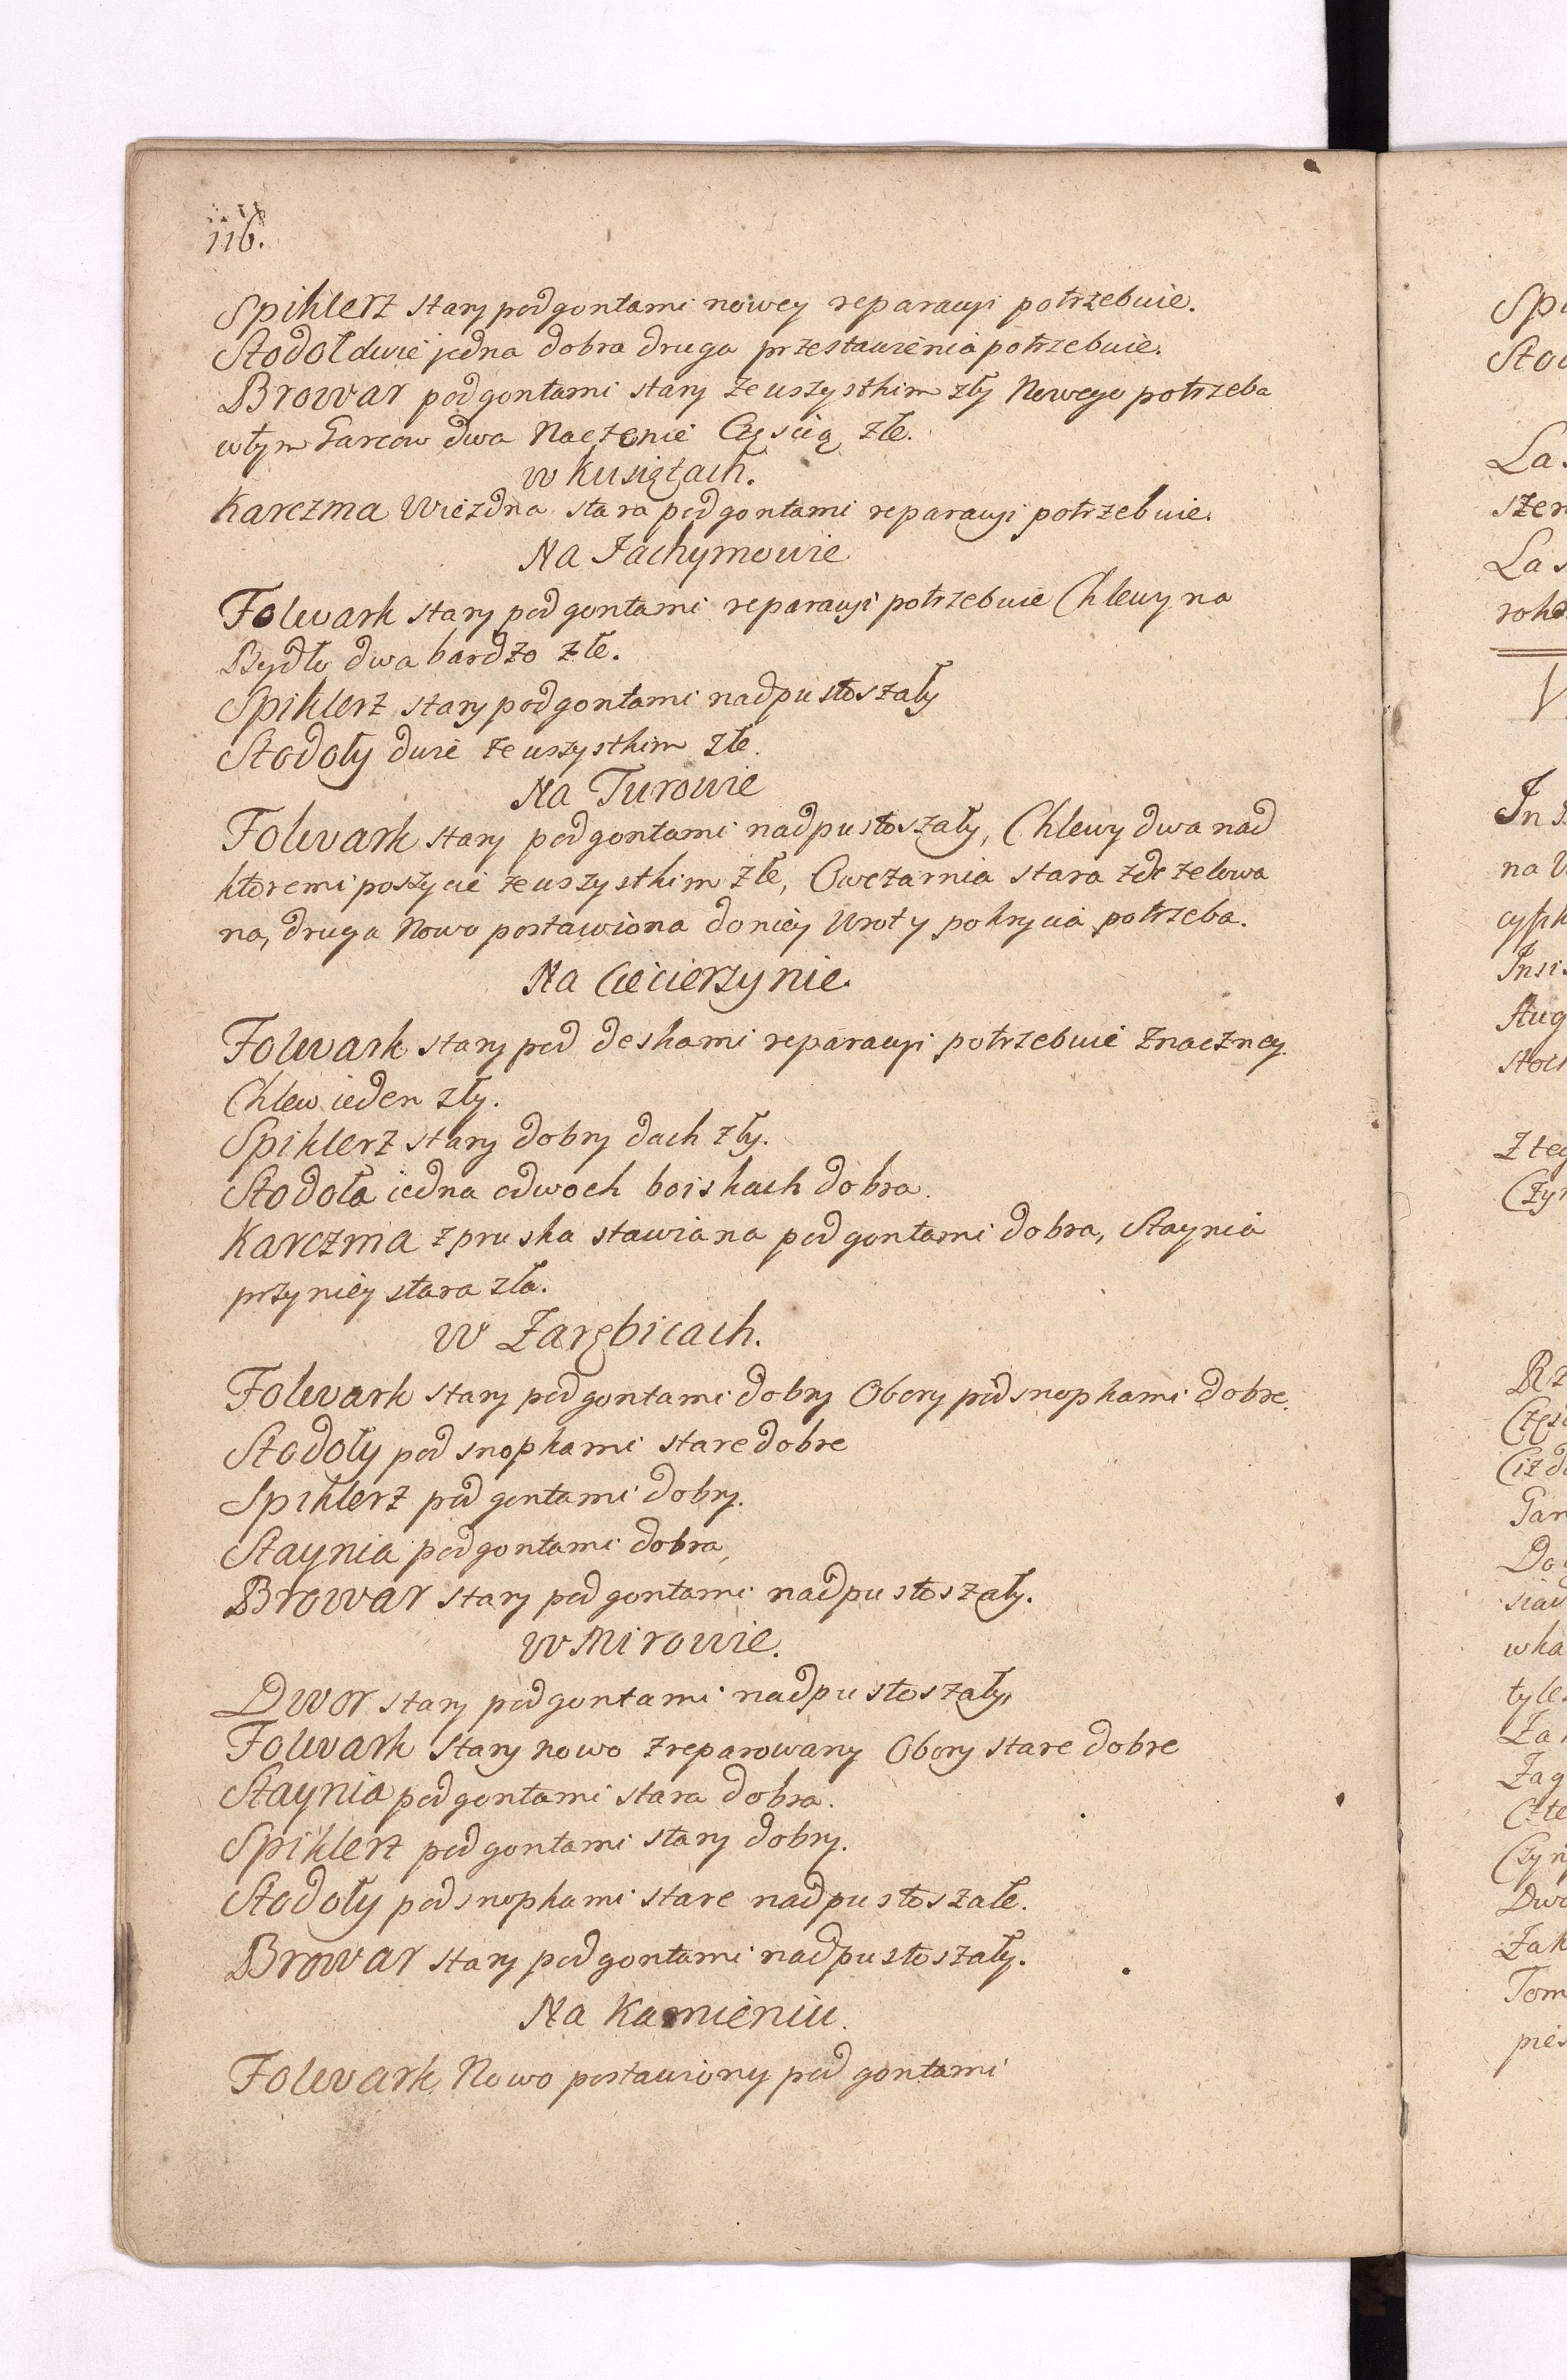 116.
Spihlerz stary pod gontami nowey reparacyi potrzebuie.
Stodoł dwie jedna dobra druga przestawienia potrzebuie.
Browar pod gontami stary ze wszystkim zły Nowego potrzeba
w tym Garcow dwa Naczenie Częscią złe.
w Kusiętach.
Karczma Wiezdna stara pod gontami reparacyi potrzebuie.
Na Jachymowie
Folwark stary pod gontami reparacyi potrzebuie Chlewy na
Bydło dwa bardzo złe.
Spihlerz stary pod gontami nadpustoszały
Stodoły dwie ze wszystkim złe.
Na Turowie
Folwark stary pod gontami nadpustoszały, Chlewy dwa nad
ktoremi poszycie ze wszystkim złe, Owczarnia stara zdezelowa
na, druga Nowo postawiona do niey Wroty pokrycia potrzeba.
Na Cieciersynie.
Folwark stary pod deskami reparacyi potrzebuie Znaczney.
Chlew ieden zły.
Spihlerz stary dobry dach zły.
Stodoła iedna o dwoch boiskach dobra.
Karczma z pruska stawiana pod gontami dobra, Staynia
przy niey stara zła.
w Zarębicach.
Folwark stary pod gontami dobry Obory pod snopkami dobre.
Stodoły pod snopkami stare dobre
Spihlerz pod gontami dobry.
Staynia pod gontami dobra,
Browar stary pod gontami nadpustoszały.
w Mirowie.
Dwor stary pod gontami nadpustoszały,
Folwark Stary nowo zreparowany Obory stare dobre
Staynia pod gontami stara dobra.
Spihlerz pod gontami stary dobry.
Stodoły pod snopkami stare nadpustoszałe.
Browar stary pod gontami nadpustoszały.
Na Kamieniu.
Folwark Nowo postawiony pod gontami